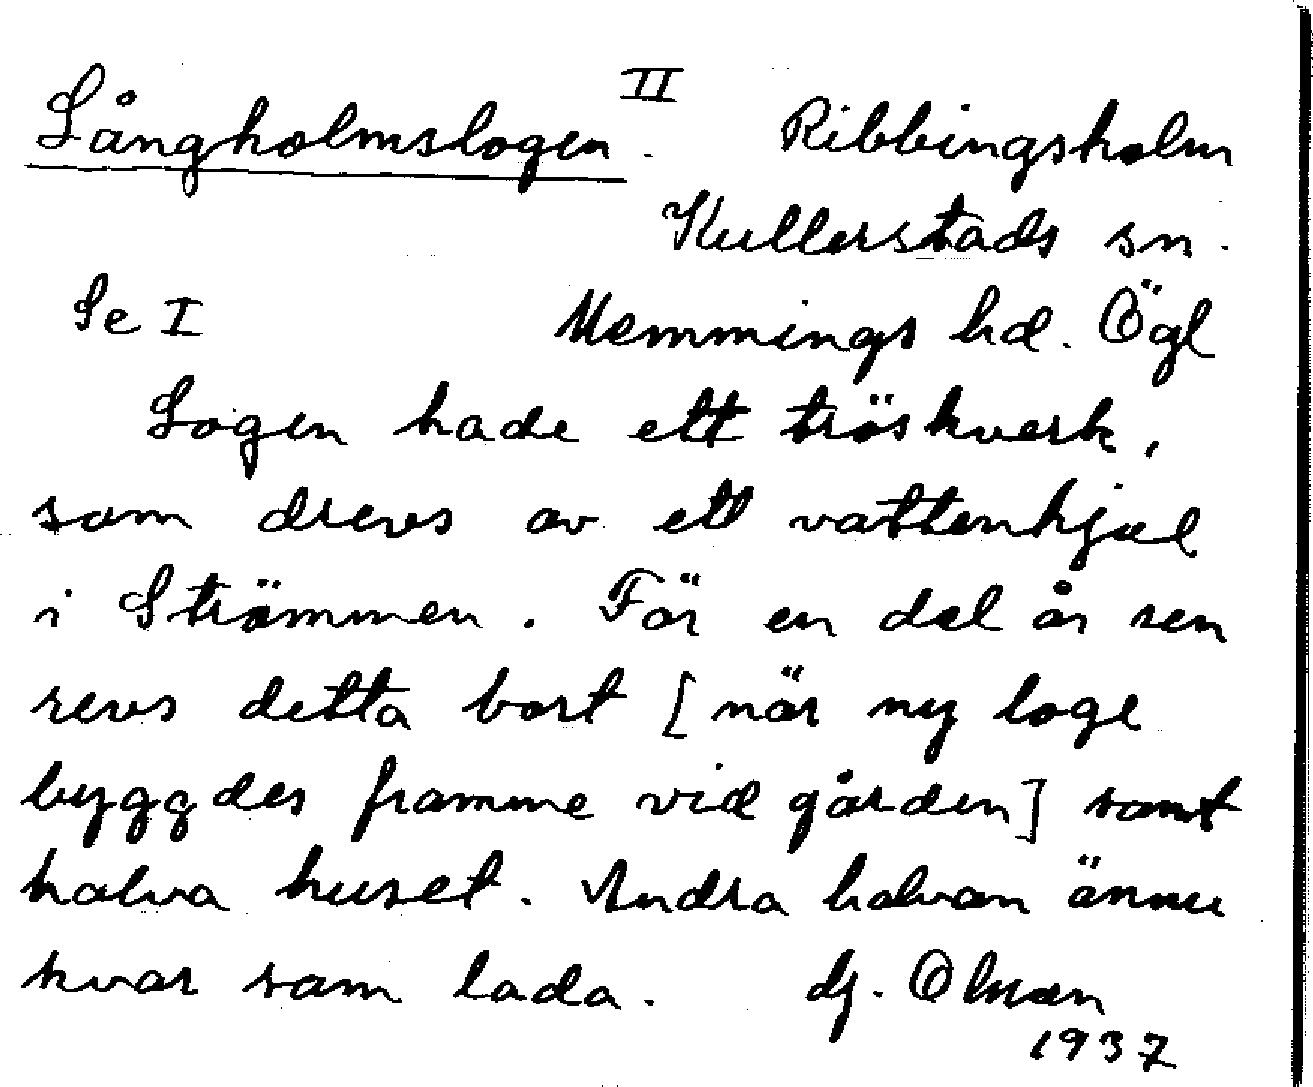 Långholmslogen. II Ribbingsholm
Kullerstads sn.
Se I Memmings hd. Ögl
Logen hade ett tröskverk,
som drevs av ett vattenhjul
i Strömmen. För en del år sen
revs detta bort [när ny loge
byggdes framme vid gården] samt
halva huset. Andra halvan ännu
kvar som lada.
1937